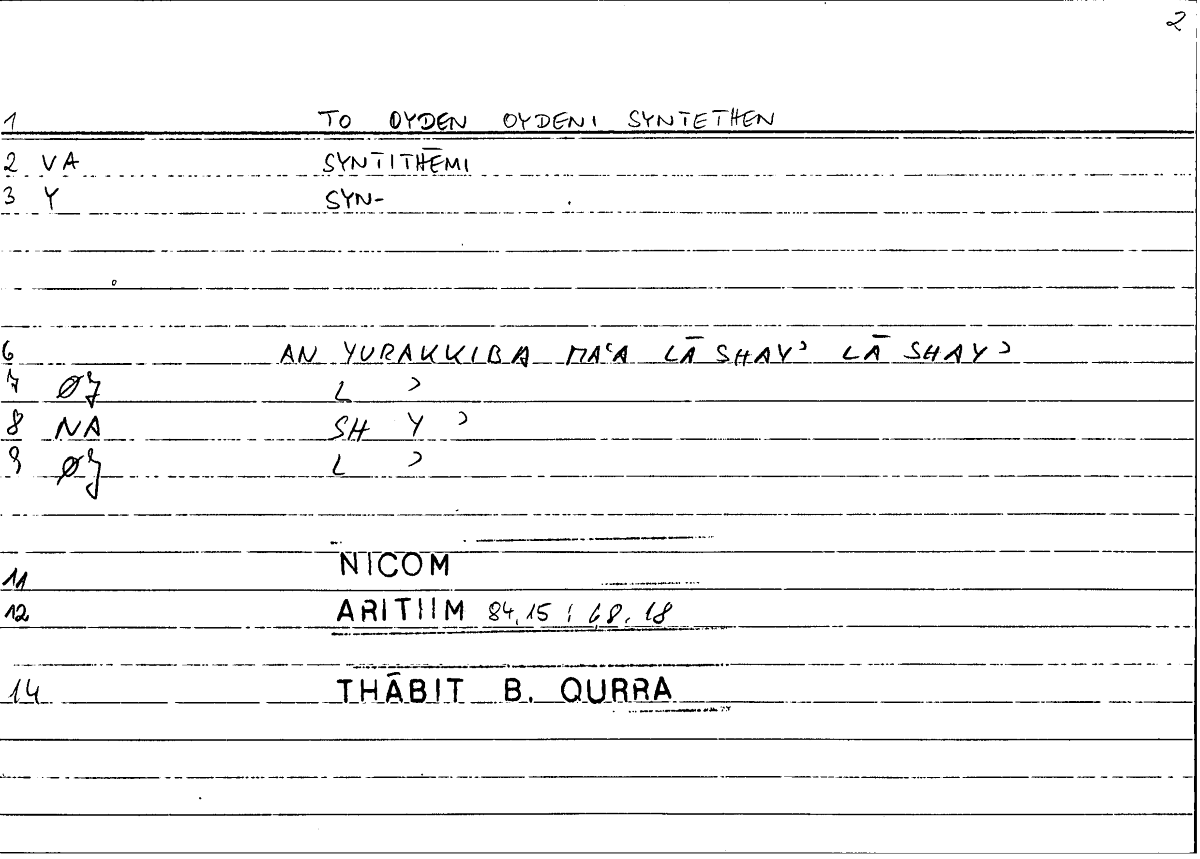 2
1 TO OYDEN OYDENI SYNTETHEN
2 VA SYNTITHĒMI
3 Y SYN-
6 AN YURAKKIBA MAʿA LĀ SHAYʾ LĀ SHAYʾ
7 ØJ L ʾ
8 NA SH Y ʾ
9 ØJ L ʾ
11 NICOM
12 ARITIIM 84,15 ; 68.18
14 THĀBIT B. QURRA